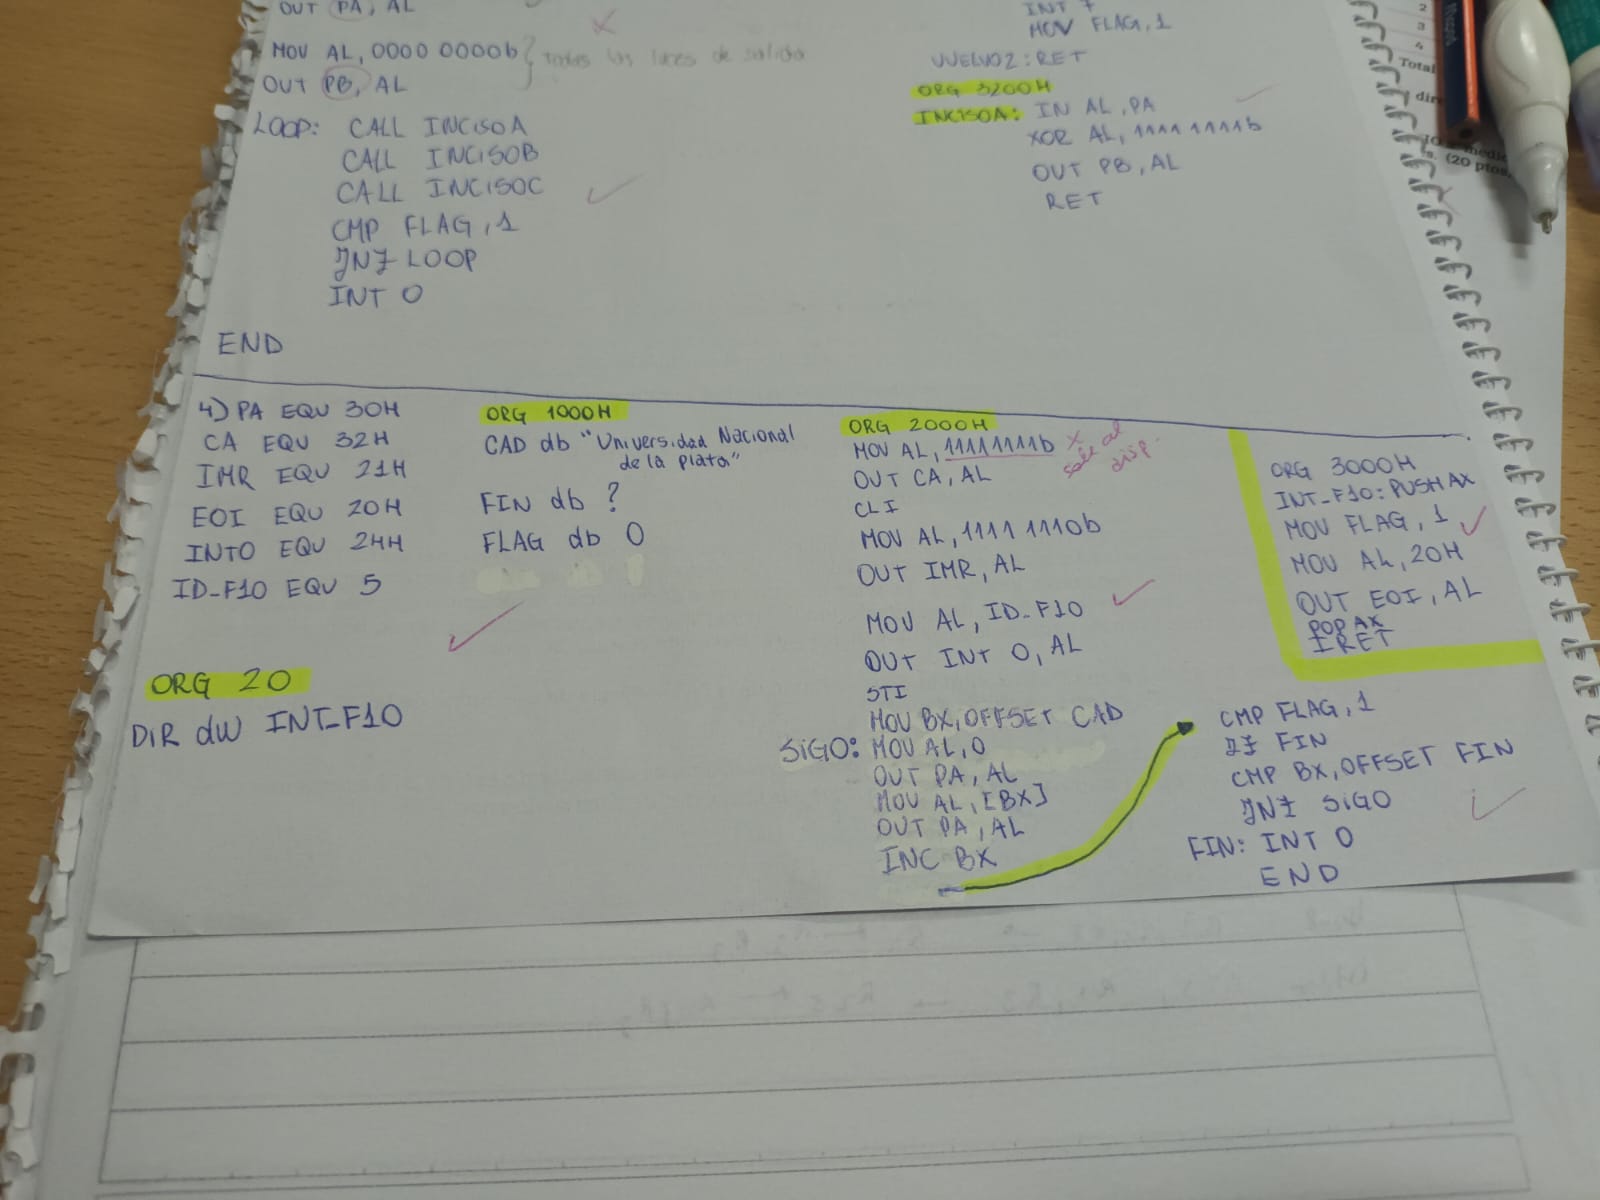 OUT PA, AL
MOV AL, 0000 0000b } todas las luces de salida
OUT PB, AL
LOOP: CALL INCISOA
CALL INCISOB
CALL INCISOC
CMP FLAG, 1
JNZ LOOP
INT 0
END
INT 7
MOV FLAG, 1
VUELVO2: RET
ORG 3200H
INCISOA: IN AL, PA
XOR AL, 1111 1111b
OUT PB, AL
RET
4) PA EQU 30H
CA EQU 32H
IMR EQU 21H
EOI EQU 20H
INT0 EQU 24H
ID_F10 EQU 5
ORG 20
DIR dW INT_F10
ORG 1000H
CAD db "Universidad Nacional
de la plata"
FIN db ?
FLAG db 0
ORG 2000H
MOV AL, 11111111b x sale al
disp.
OUT CA, AL
CLI
MOV AL, 1111 1110b
OUT IMR, AL
MOV AL, ID_F10
OUT INT 0, AL
STI
MOV BX, OFFSET CAD
SIGO: MOV AL, 0
OUT PA, AL
MOV AL, [BX]
OUT PA, AL
INC BX
ORG 3000H
INT_F10: PUSH AX
MOV FLAG, 1
MOV AL, 20H
OUT EOI, AL
POP AX
IRET
CMP FLAG, 1
JZ FIN
CMP BX, OFFSET FIN
JNZ SIGO
FIN: INT 0
END
2
3
4
Total
(20 ptos.